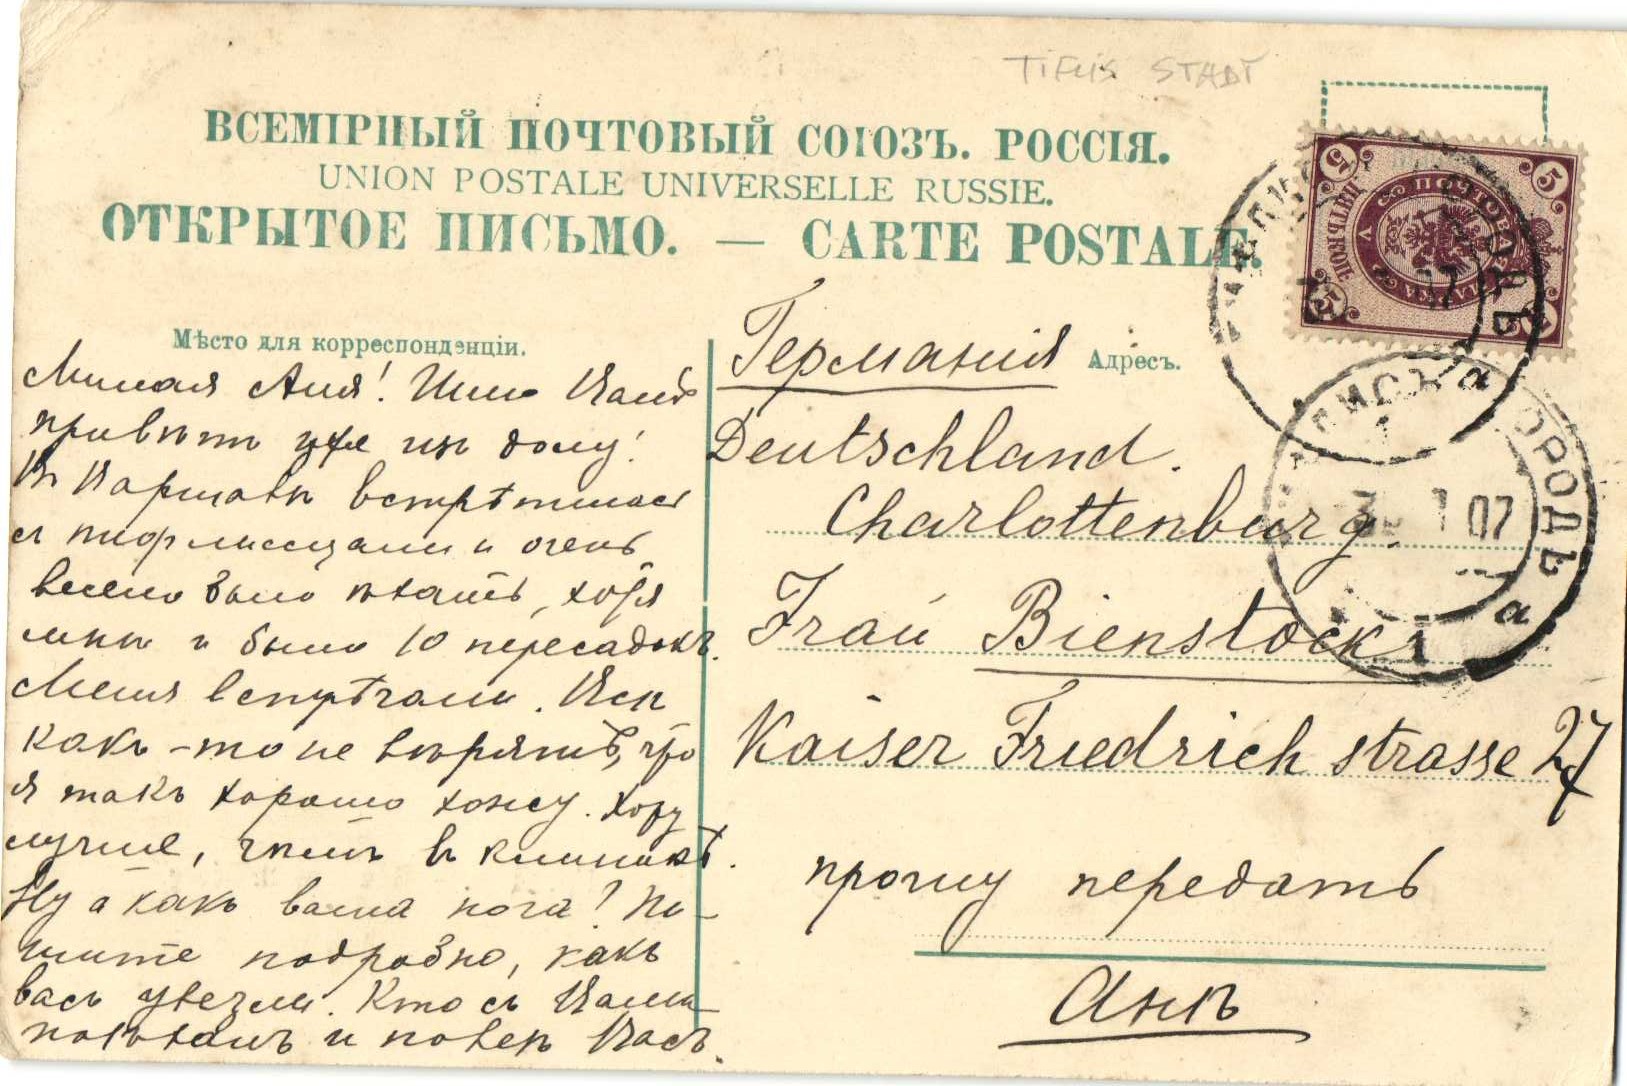 TIFLIS STADT
ВСЕМІРНЫЙ ПОЧТОВЫЙ СОЮЗЪ. РОССІЯ.
UNION POSTALE UNIVERSELLE RUSSIE.
ОТКРЫТОЕ ПИСЬМО. — CARTE POSTALE.
Мѣсто для корреспонденціи.
Милая Аня! Шлю Вамъ
привѣтъ уже изъ дому!
Въ Варшавѣ встрѣтилась
съ тифлисцами и очень
весело было ѣхать, хотя
мнѣ и было 10 пересадокъ.
Меня встрѣчали. Всѣ
какъ-то не вѣрятъ, что
я такъ хорошо хожу. Хожу
лучше, чѣмъ въ клиникѣ.
Ну а какъ ваша нога? На-
пишите подробно, какъ
васъ увезли. Кто съ Вами
поѣхалъ и повезъ Васъ.
Адресъ.
Германія
Deutschland.
Charlottenburg.
Frau Bienstock
Kaiser Friedrich strasse 27
прошу передать
Анѣ
5 5
ПОЧТОВАЯ МАРКА
5
ГОРОДЪ
1 07
1 а